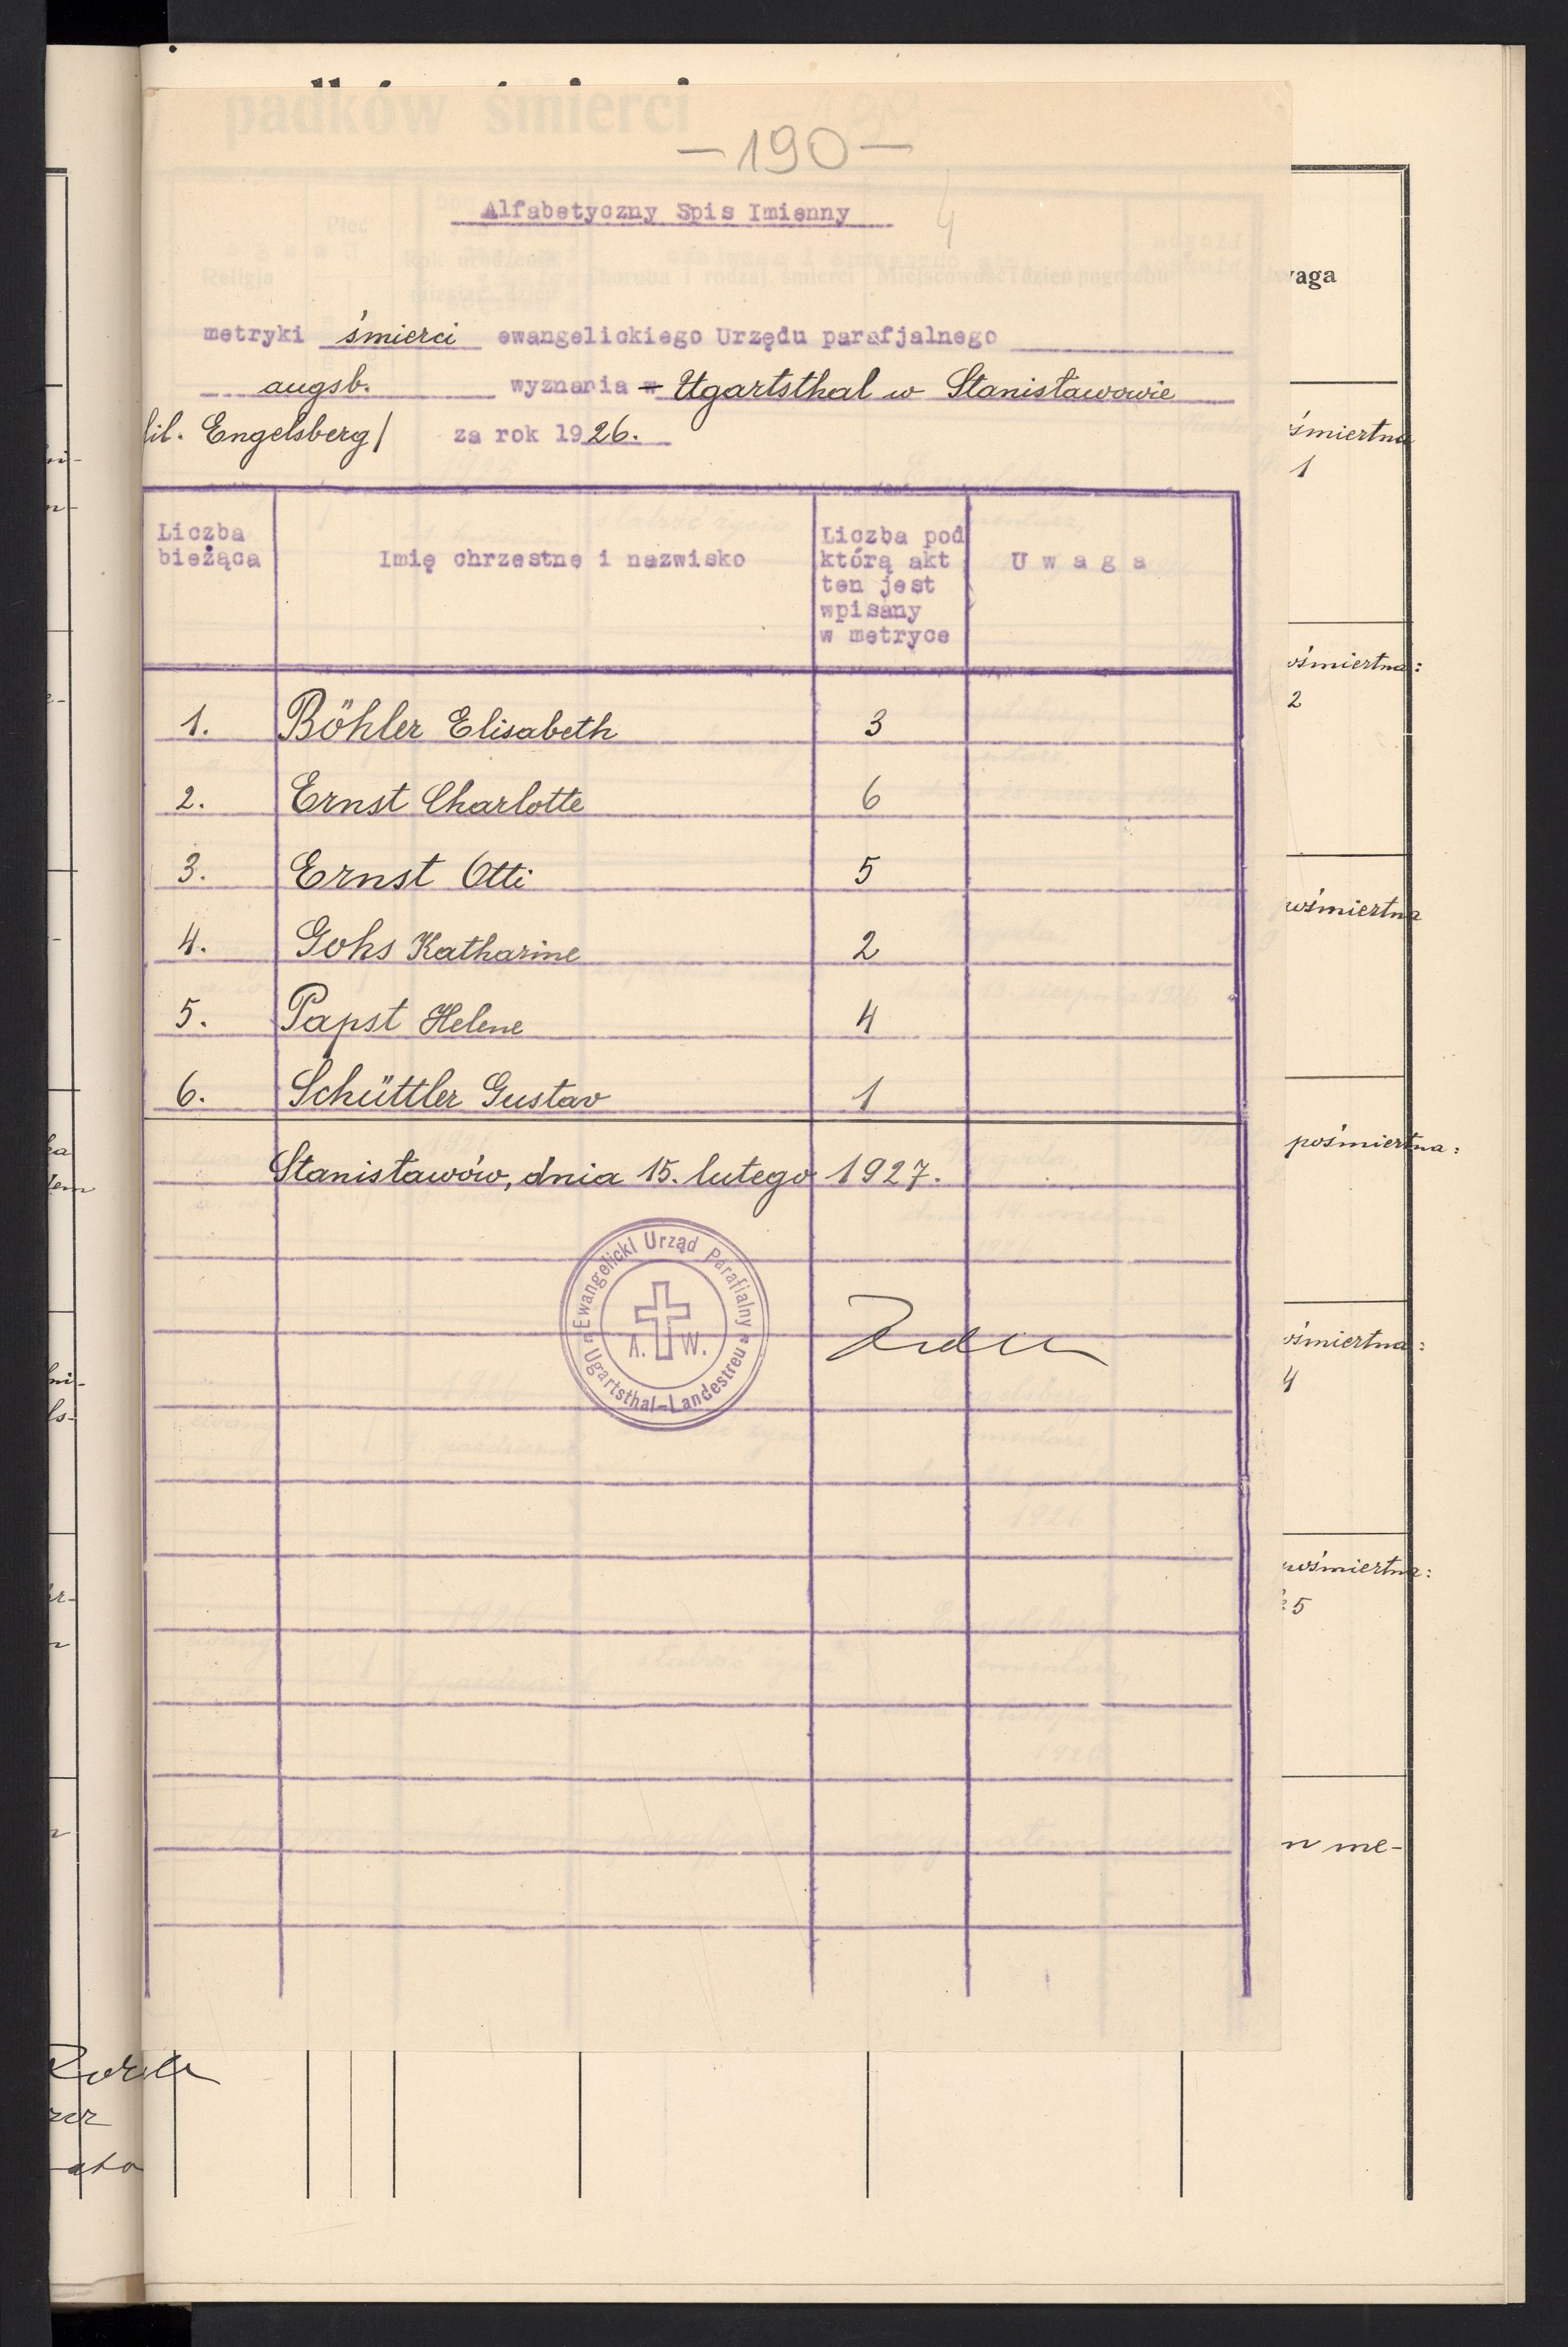 — 190 —
4
Alfabetyczny Spis Imienny
metryki śmierci ewangelickiego Urzędu parafjalnego
augsb. wyznania w Ugartsthal w Stanisławowie
fil. Engelsberg/ za rok 1926.
Liczba bieżąca
Imię chrzestne i nazwisko
Liczba pod którą akt ten jest wpisany w metryce
Uwaga
1. Böhler Elisabeth 3
2. Ernst Charlotte 6
3. Ernst Otti 5
4. Gohs Katharine 2
5. Papst Helene 4
6. Schüttler Gustav 1
Stanisławów, dnia 15. lutego 1927.
Ewangelicki Urząd Parafialny
A. W.
Ugartsthal-Landestreu
padków śmierci
Płeć
Religja
vaga
śmiertna
1
ośmiertna:
2
ośmiertna
pośmiertna:
ośmiertna:
4
pośmiertna:
5
n me-